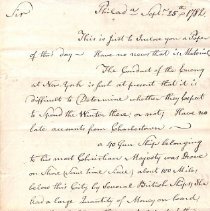 Sir Philada. Sept. 25th 1782.
This is just to Inclose you a Paper
of this day — Have no news that is Material
The Conduct of the Enemy
at New York is such at present that it is
difficult to Determine whether they expect
to Spend the Winter there, or not; Have no
late accounts from Charlestown —
a 40 Gun Ship belonging
to his most Christian Majesty was Drove
on Shore (some time since) about 100 Miles
below this City by Several British Ships, She
had a large Quantity of Money on board,